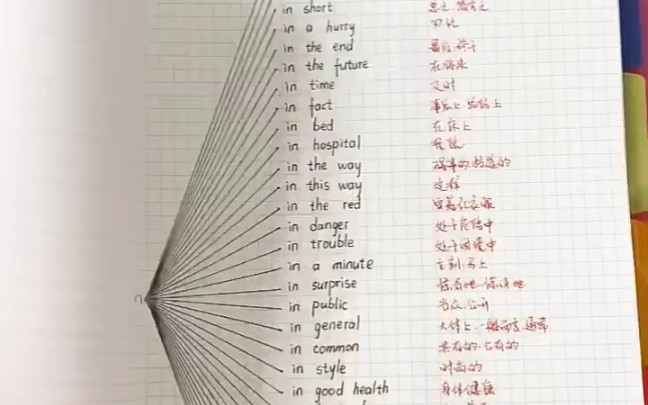 in short 总之.简言之
in a hurry 匆忙
in the end 最后.终于
in the future 在将来
in time 及时
in fact 事实上.实际上
in bed 在床上
in hospital
in the way 碍事的.挡道的
in this way 这样
in the red
in danger 处于危险中
in trouble 处于困境中
in a minute 立刻.马上
in surprise 惊奇地.惊讶地
in public 当众.公开
in general 大体上.一般而言.通常
in common 共有的.公有的
in style 时尚的
in good health 身体健康